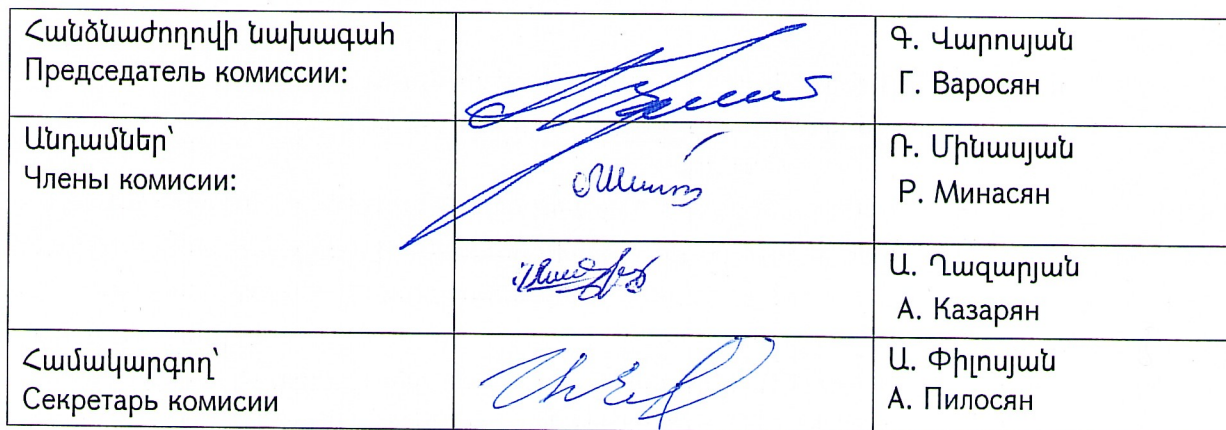 Հանձնաժողովի նախագահ
Председатель комиссии:
Գ. Վարոսյան
Г. Варосян
Անդամներ՝
Члены комисии:
Ռ. Մինասյան
Р. Минасян
Ա. Ղազարյան
А. Казарян
Համակարգող՝
Секретарь комисии
Ա. Փիլոսյան
А. Пилосян